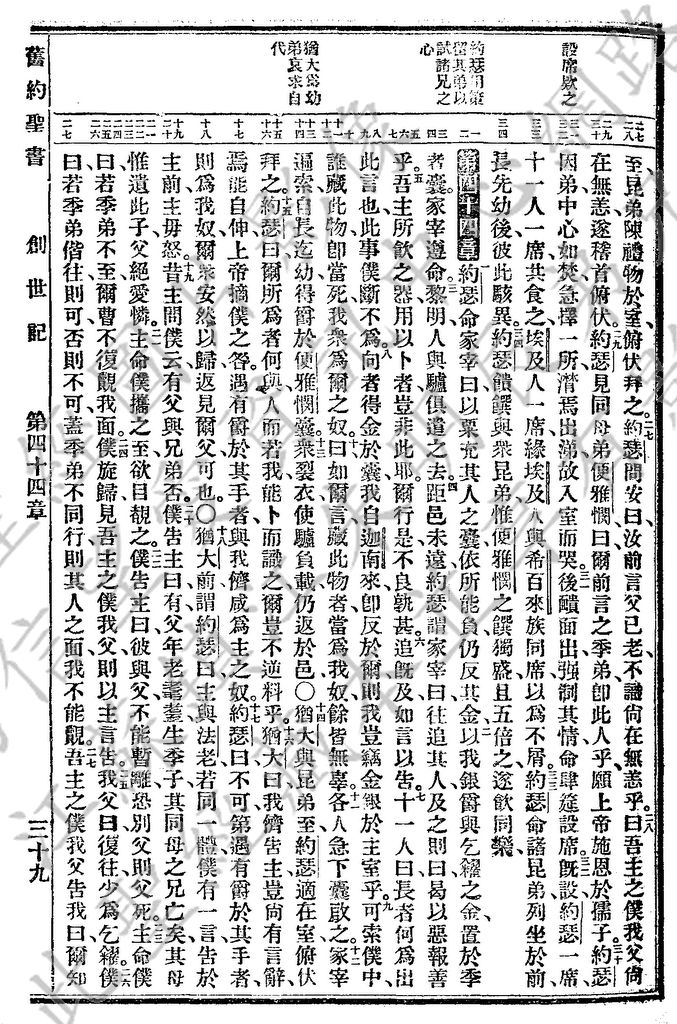 舊約聖書 創世記 第四十四章 三十九
設席歡之
約瑟用策
留其弟以
試諸兄之
心
猶大為幼
弟哀求自
代
至昆弟陳禮物於室俯伏拜之約瑟問安曰汝前言父已老不識尚在無恙乎曰吾主之僕我父尚
在無恙遂稽首俯伏約瑟見同母弟便雅憫曰爾前言之季弟卽此人乎願上帝施恩於孺子約瑟
因弟中心如焚急擇一所潸焉出涕故入室而哭後靧面出强制其情命肆筵設席旣設約瑟一席
十一人一席共食之埃及人一席緣埃及人與希百來族同席以為不屑約瑟命諸昆弟列坐於前
長先幼後彼此駭異約瑟饋饌與衆昆弟惟便雅憫之饌獨盛且五倍之遂飲同樂
第四十四章 約瑟命家宰曰以粟充其人之囊依所能負仍反其金以我銀爵與乞糴之金置於季
者囊家宰遵命黎明人與驢俱遣之去距邑未遠約瑟謂家宰曰往追其人及之則曰曷以惡報善
乎吾主所飲之器用以卜者豈非此耶爾行是不良孰甚追旣及如言以告十一人曰長者何為出
此言也此事僕斷不為向者得金於囊我自迦南來卽反於爾則我豈竊金銀於主室乎可索僕中
誰藏此物卽當死我衆為爾之奴曰如爾言藏此物者當為我奴餘皆無辜各人急下囊啟之家宰
遍索自長迄幼得爵於便雅憫囊衆裂衣使驢負載仍返於邑〇猶大與昆弟至約瑟適在室俯伏
拜之約瑟曰爾所為者何與人而若我能卜而識之爾豈不逆料乎猶大曰我儕告主豈尚有言辭
焉能自伸上帝摘僕之咎遇有爵於其手者與我儕咸為主之奴約瑟曰不可第遇有爵於其手者
則為我奴爾衆安然以歸返見爾父可也〇猶大前謂約瑟曰主與法老若同一體僕有一言告於
主前主毋怒昔主問僕云有父與兄弟否僕告主曰有父年老耄耋生季子其同母之兄亡矣其母
惟遺此子父絕愛憐主命僕攜之至欲目覩之僕告主曰彼與父不能暫離恐別父則父死主命僕
曰若季弟不至爾曹不復覿我面僕旋歸見吾主之僕我父則以主言告我父曰復往少為乞糴僕
曰若季弟偕往則可否則不可蓋季弟不同行則其人之面我不能覿吾主之僕我父告我曰爾知